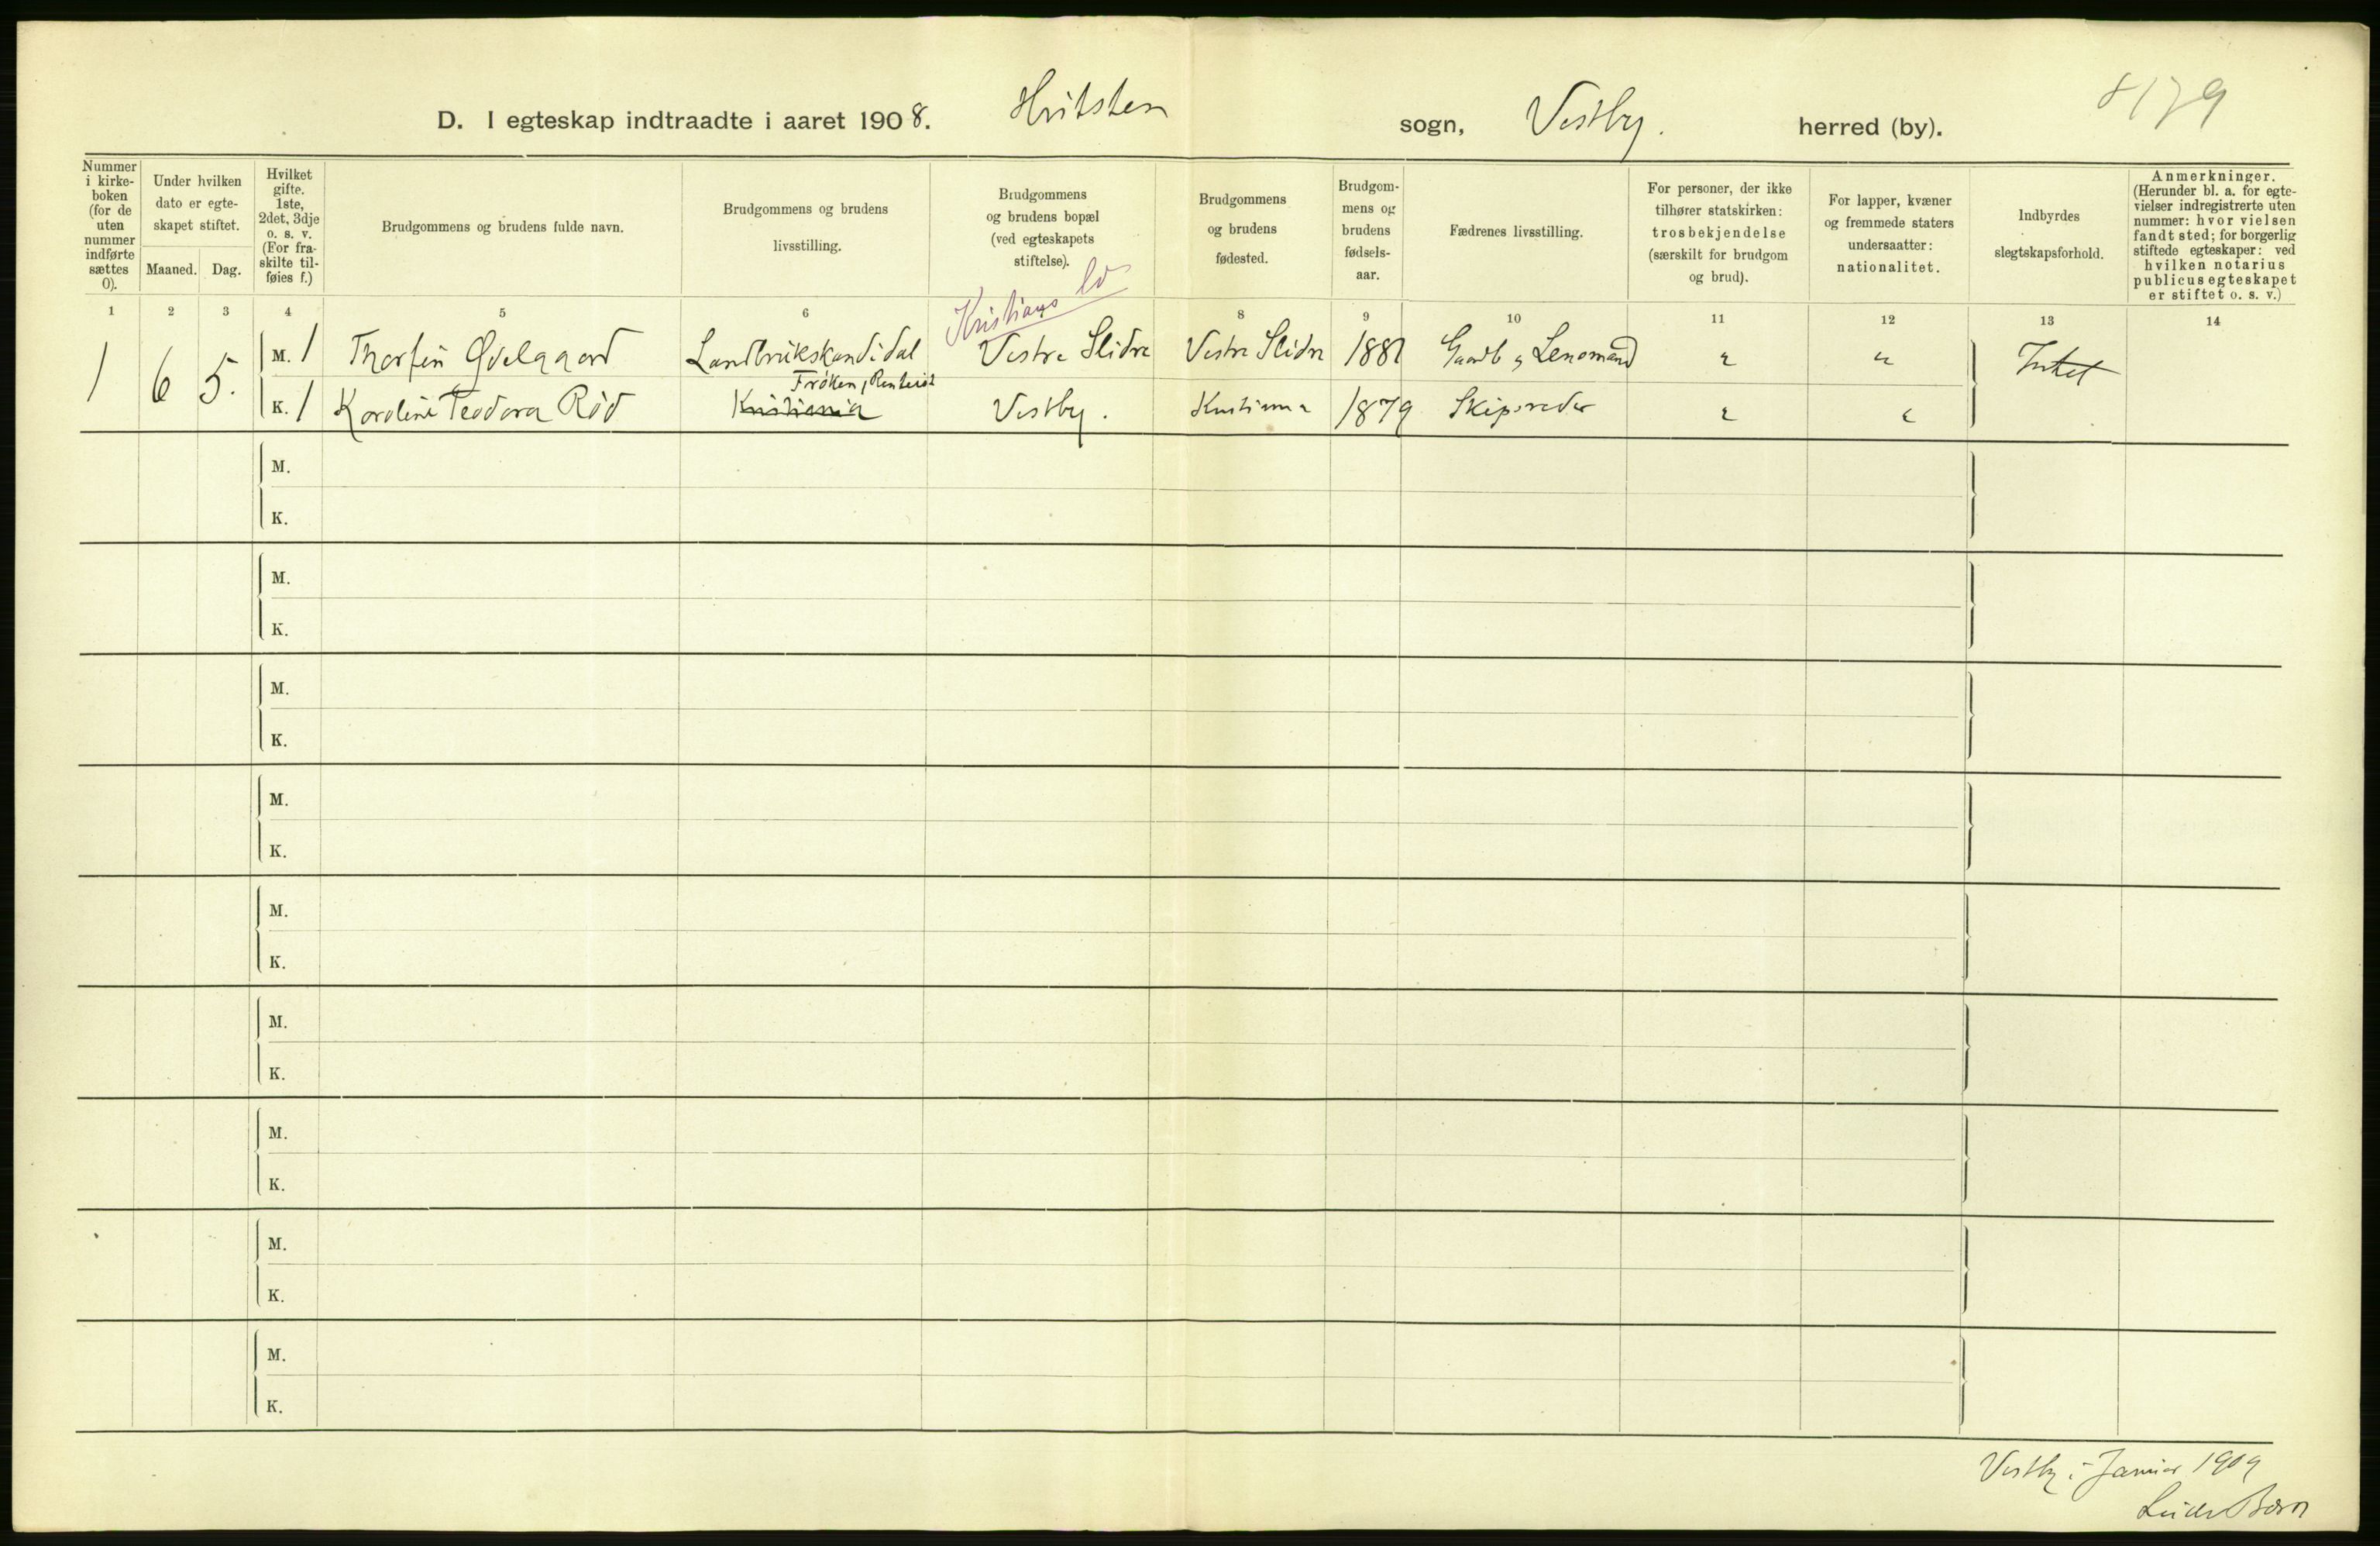 8179
D. I egteskap indtraadte i aaret 1908. Hvitsten sogn, Vestby. herred (by).
Nummer i kirke-boken (for de uten nummer indførte sættes 0).
Under hvilken dato er egte-skapet stiftet.
Maaned. Dag.
Hvilket gifte. 1ste, 2det, 3dje o. s. v. (For fra-skilte til-føies f.)
Brudgommens og brudens fulde navn.
Brudgommens og brudens livsstilling.
Brudgommens og brudens bopæl (ved egteskapets stiftelse).
Brudgommens og brudens fødested.
Brudgom-mens og brudens fødsels-aar.
Fædrenes livsstilling.
For personer, der ikke tilhører statskirken: trosbekjendelse (særskilt for brudgom og brud).
For lapper, kvæner og fremmede staters undersaatter: nationalitet.
Indbyrdes slegtskapsforhold.
Anmerkninger. (Herunder bl. a. for egte-vielser indregistrerte uten nummer: hvor vielsen fandt sted; for borgerlig stiftede egteskaper: ved hvilken notarius publicus egteskapet er stiftet o. s. v.)
1 2 3 4 5 6 8 9 10 11 12 13 14
Kristians
1 6 5. M. 1 Thorfin Ødelgaard Landbrukskandidat Vestre Slidre Vestre Slidre 1881 Gaardb og Lensmand " " Intet
Frøken,
K. 1 Karoline Teodora Rød Kristiania Vestby. Kristiania 1879 Skipsreder " "
M.
K.
M.
K.
M.
K.
M.
K.
M.
K.
M.
K.
M.
K.
M.
K.
M.
K.
Vestby i Januar 1909